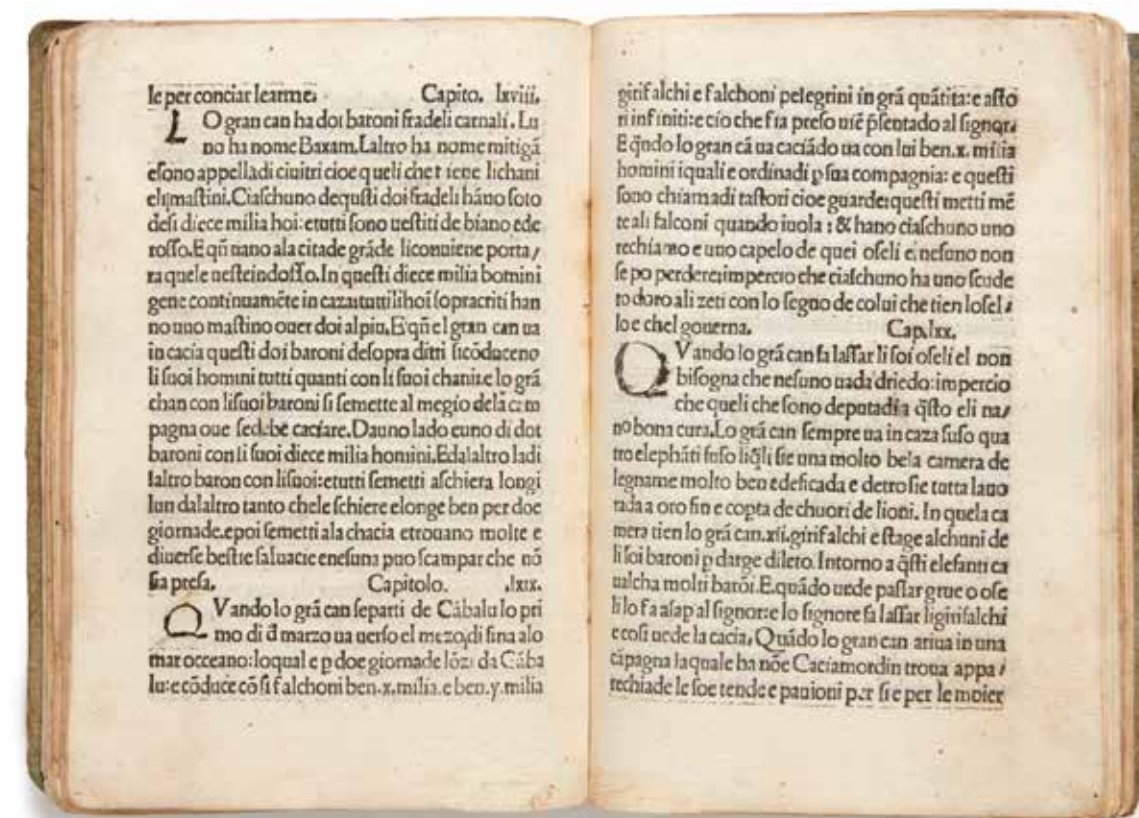 le per conciar learme. Capito. lxviii.
LO gran can ha doi baroni fradeli carnali. Lu
no ha nome Baxam. Laltro ha nome mitigã
esono appelladi ciuitri cioe queli che tiene lichani
eli mastini. Ciaschuno dequsti doi fradeli hãno soto
desi diece milia hoi: etutti sono uestiti de biano ede
rosso. E qñ nano ala citade grãde liconuiene porta/
ra quele uesteindosso. In questi diece milia bomini
gene continuamẽte in caza: tutti lihoĩ sopracriti han
no uno mastino ouer doi al piu. E qñ el gran can ua
in cacia questi doi baroni desopra ditti sicõduceno
li suoi homini tutti quanti con li suoi chani: e lo grã
chan con lisuoi baroni si semette al megio dela cam
pagna oue sedebe caciare. Dauno lado euno di dot
baroni con li suoi diece milia homini. Edalaltro ladi
laltro baron con lisuoi: etutti semetti aschiera longi
lun dalaltro tanto chele schiere elonge ben per doe
giornade. epoi semetti ala chacia etrouano molte e
diuerse bestie saluacie enesuna puo scampar che nõ
sia presa. Capitolo. .lxix.
QVando lo grã can separti de Cãbalu lo pri
mo di đ marzo ua uerso el mezo, di fina alo
mar occeano: loqual e p doe giornade lõzi da Cãba
lu: e cõduce cõ si falchoni ben .x. milia. e ben .y. milia
girifalchi e falchoni pelegrini in grã quãtita: e asto
ri infiniti: e cio che fia preso uiẽ p̃sentado al signor.
E qñdo lo gran cã ua caciãdo ua con lui ben .x. milia
homini iquali e ordinadi p sua compagnia: e questi
sono chiamadi tastori cioe guarde: questi metti mẽ
te ali falconi quando iuola: & hano ciaschuno uno
rechiamo e uno capelo de quei oseli e nesuno non
se po perdere: impercio che ciaschuno ha uno scude
to doro ali zeti con lo segno de colui che tien losel/
lo e chel gouerna. Cap. lxx.
QVando lo grã can fa lassar li soi oseli el non
bisogna che nesuno uada driedo: impercio
che queli che sono deputadi a q̃sto eli na/
no bona cura. Lo grã can sempre ua in caza suso qua
tro elephãti suso liq̃li sie una molto bela camera de
legname molto ben edeficada e detro sie tutta lauo
rada a oro fin e copta de chuori de lioni. In quela ca
mera tien lo grã can .xii. girifalchi e stage alchuni de
li soi baroni p darge dileto. Intorno a q̃sti elefanti ca
ualcha molti barõi. E quãdo uede passar grue o ose
li lo fa asap al signor: e lo signore fa lassar ligirifalchi
e cosi uede la cacia. Quãdo lo gran can ariua in una
cãpagna laquale ha nõe Caciamordin troua appa/
rechiade le soe tende e pauioni per si e per le moier